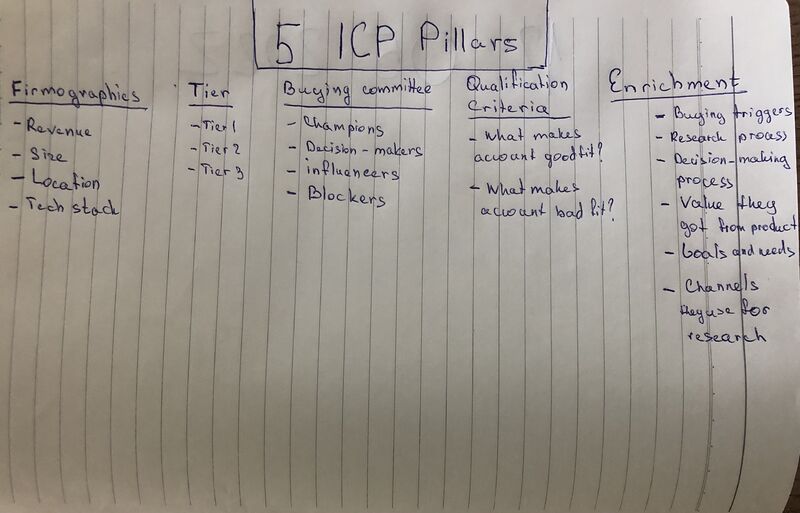 5 ICP Pillars
Firmographics
- Revenue
- Size
- Location
- Tech stack
Tier
- Tier 1
- Tier 2
- Tier 3
Buying committee
- Champions
- Decision-makers
- influencers
- Blockers
Qualification
Criteria
- What makes
account good fit?
- What makes
account bad fit?
Enrichment
- Buying triggers
- Research process
- Decision-making
process
- Value they
got from product
- Goals and needs
- Channels
they use for
research